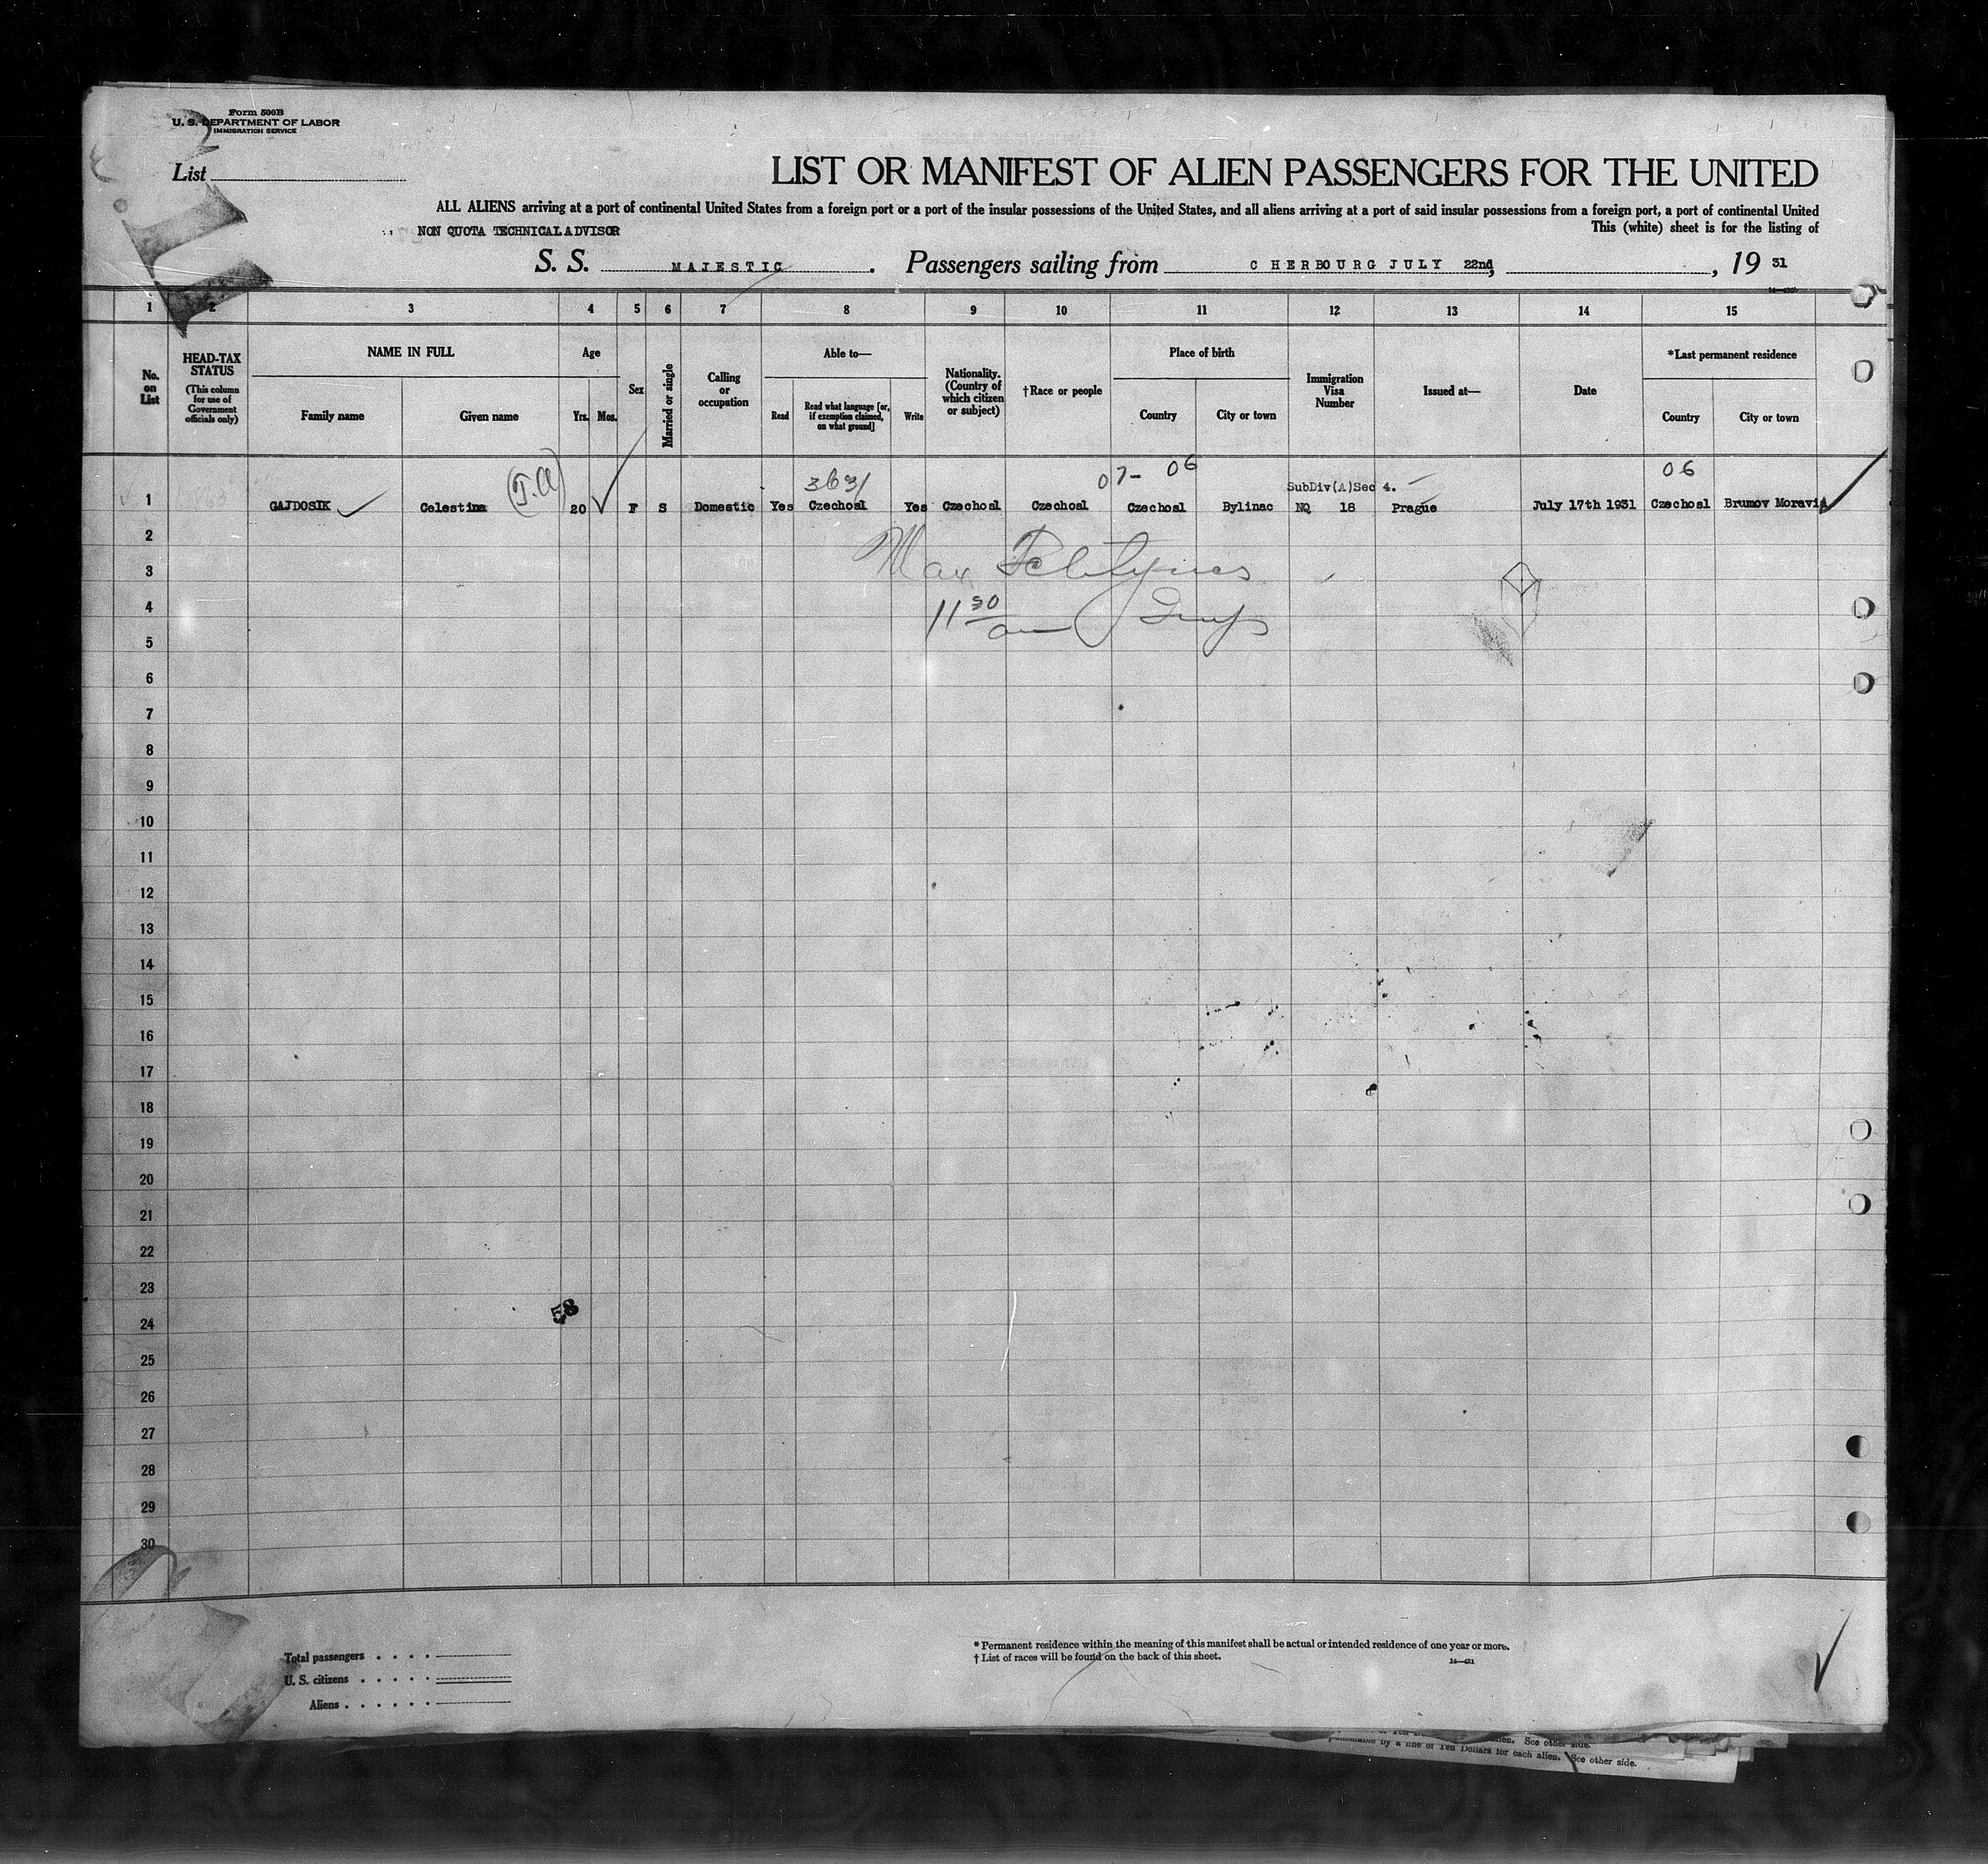 Form 500B
U. S. DEPARTMENT OF LABOR
IMMIGRATION SERVICE
List
LIST OR MANIFEST OF ALIEN PASSENGERS FOR THE UNITED
ALL ALIENS arriving at a port of continental United States from a foreign port or a port of the insular possessions of the United States, and all aliens arriving at a port of said insular possessions from a foreign port, a port of continental United
This (white) sheet is for the listing of
NON QUOTA TECHNICAL ADVISOR
S. S. MAJESTIC. Passengers sailing from CHERBOURG JULY 22nd, , 19 31
1 2 3 4 5 6 7 8 9 10 11 12 13 14 15
No. on List
HEAD-TAX STATUS
(This column for use of Government officials only)
NAME IN FULL
Family name Given name
Age
Yrs. Mos.
Sex
Married or single
Calling or occupation
Able to—
Read
Read what language [or, if exemption claimed, on what ground]
Write
Nationality. (Country of which citizen or subject)
†Race or people
Place of birth
Country City or town
Immigration Visa Number
Issued at—
Date
*Last permanent residence
Country City or town
(T.A) 3631 07- 06 06
SubDiv(A)Sec 4.
1 GAJDOSIK Celestina 20 F S Domestic Yes Czechosl Yes Czechosl Czechosl Czechosl Bylinac NQ 18 Prague July 17th 1931 Czechosl Brumov Moravia
2
3 Max
4 11 30 am
5
6
7
8
9
10
11
12
13
14
15
16
17
18
19
20
21
22
23
58
24
25
26
27
28
29
30
Total passengers . . . .
U. S. citizens . . . . .
Aliens . . . . . .
* Permanent residence within the meaning of this manifest shall be actual or intended residence of one year or more.
† List of races will be found on the back of this sheet.
by a fine of Ten Dollars for each alien. See other side.